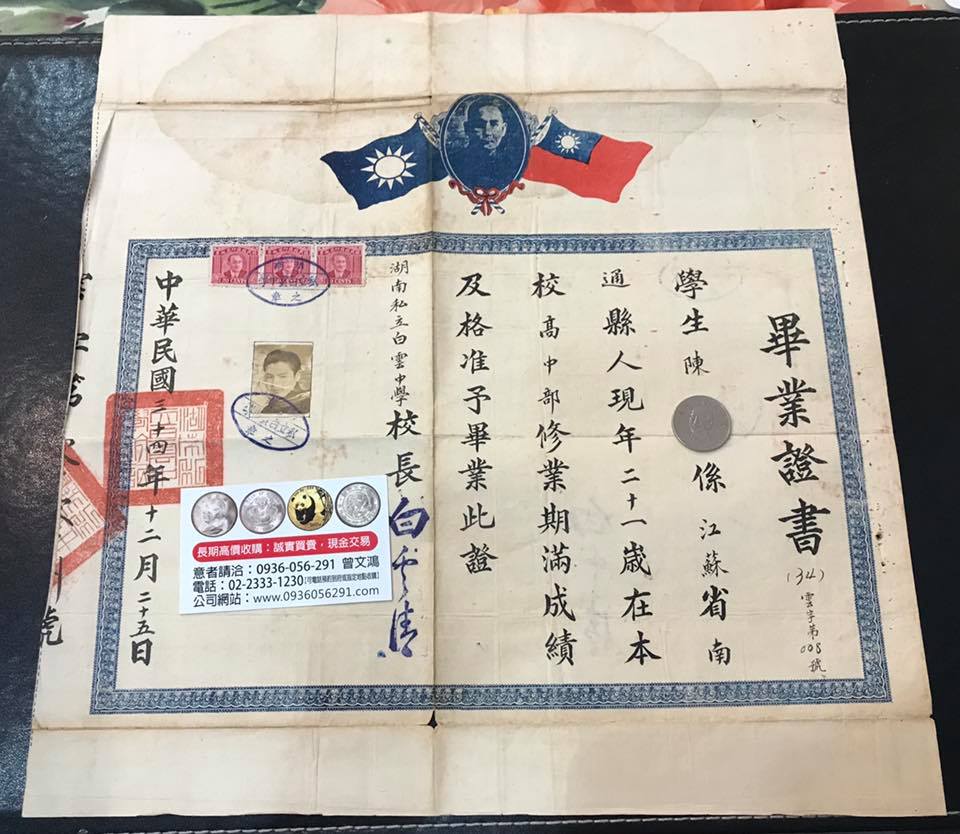 畢業證書
(34)雲字第008號
學生陳 係江蘇省南
通縣人現年二十一歲在本
校高中部修業期滿成績
及格准予畢業此證
湖南私立白雲中學校長白雲清
中華民國三十四年十二月二十五日
長期高價收購：誠實買賣，現金交易
意者請洽：0936-056-291 曾文鴻
電話：02-2333-1230【可電話預約到府或指定地點收購】
公司網站：www.0936056291.com